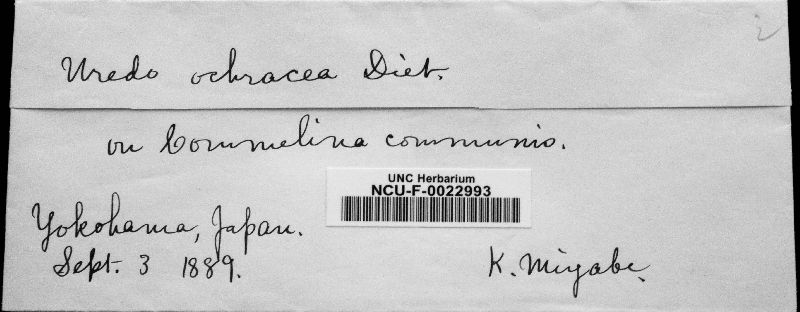 Uredo ochracea Diet.
on Commelina communis.
UNC Herbarium
NCU-F-0022993
Yokohama, Japan.
Sept. 3 1889.
K. Miyabe.